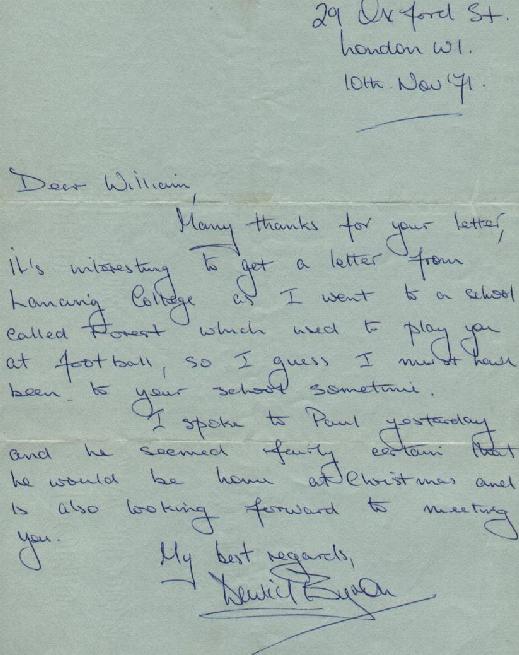 29 Oxford St.
London W1.
10th Nov '71.
Dear William,
Many thanks for your letter,
it's interesting to get a letter from
Lancing College as I went to a school
called Forest which used to play you
at football, so I guess I must have
been to your school sometime.
I spoke to Paul yesterday
and he seemed fairly certain that
he would be home at Christmas and
is also looking forward to meeting
you.
My best regards,
David Byron